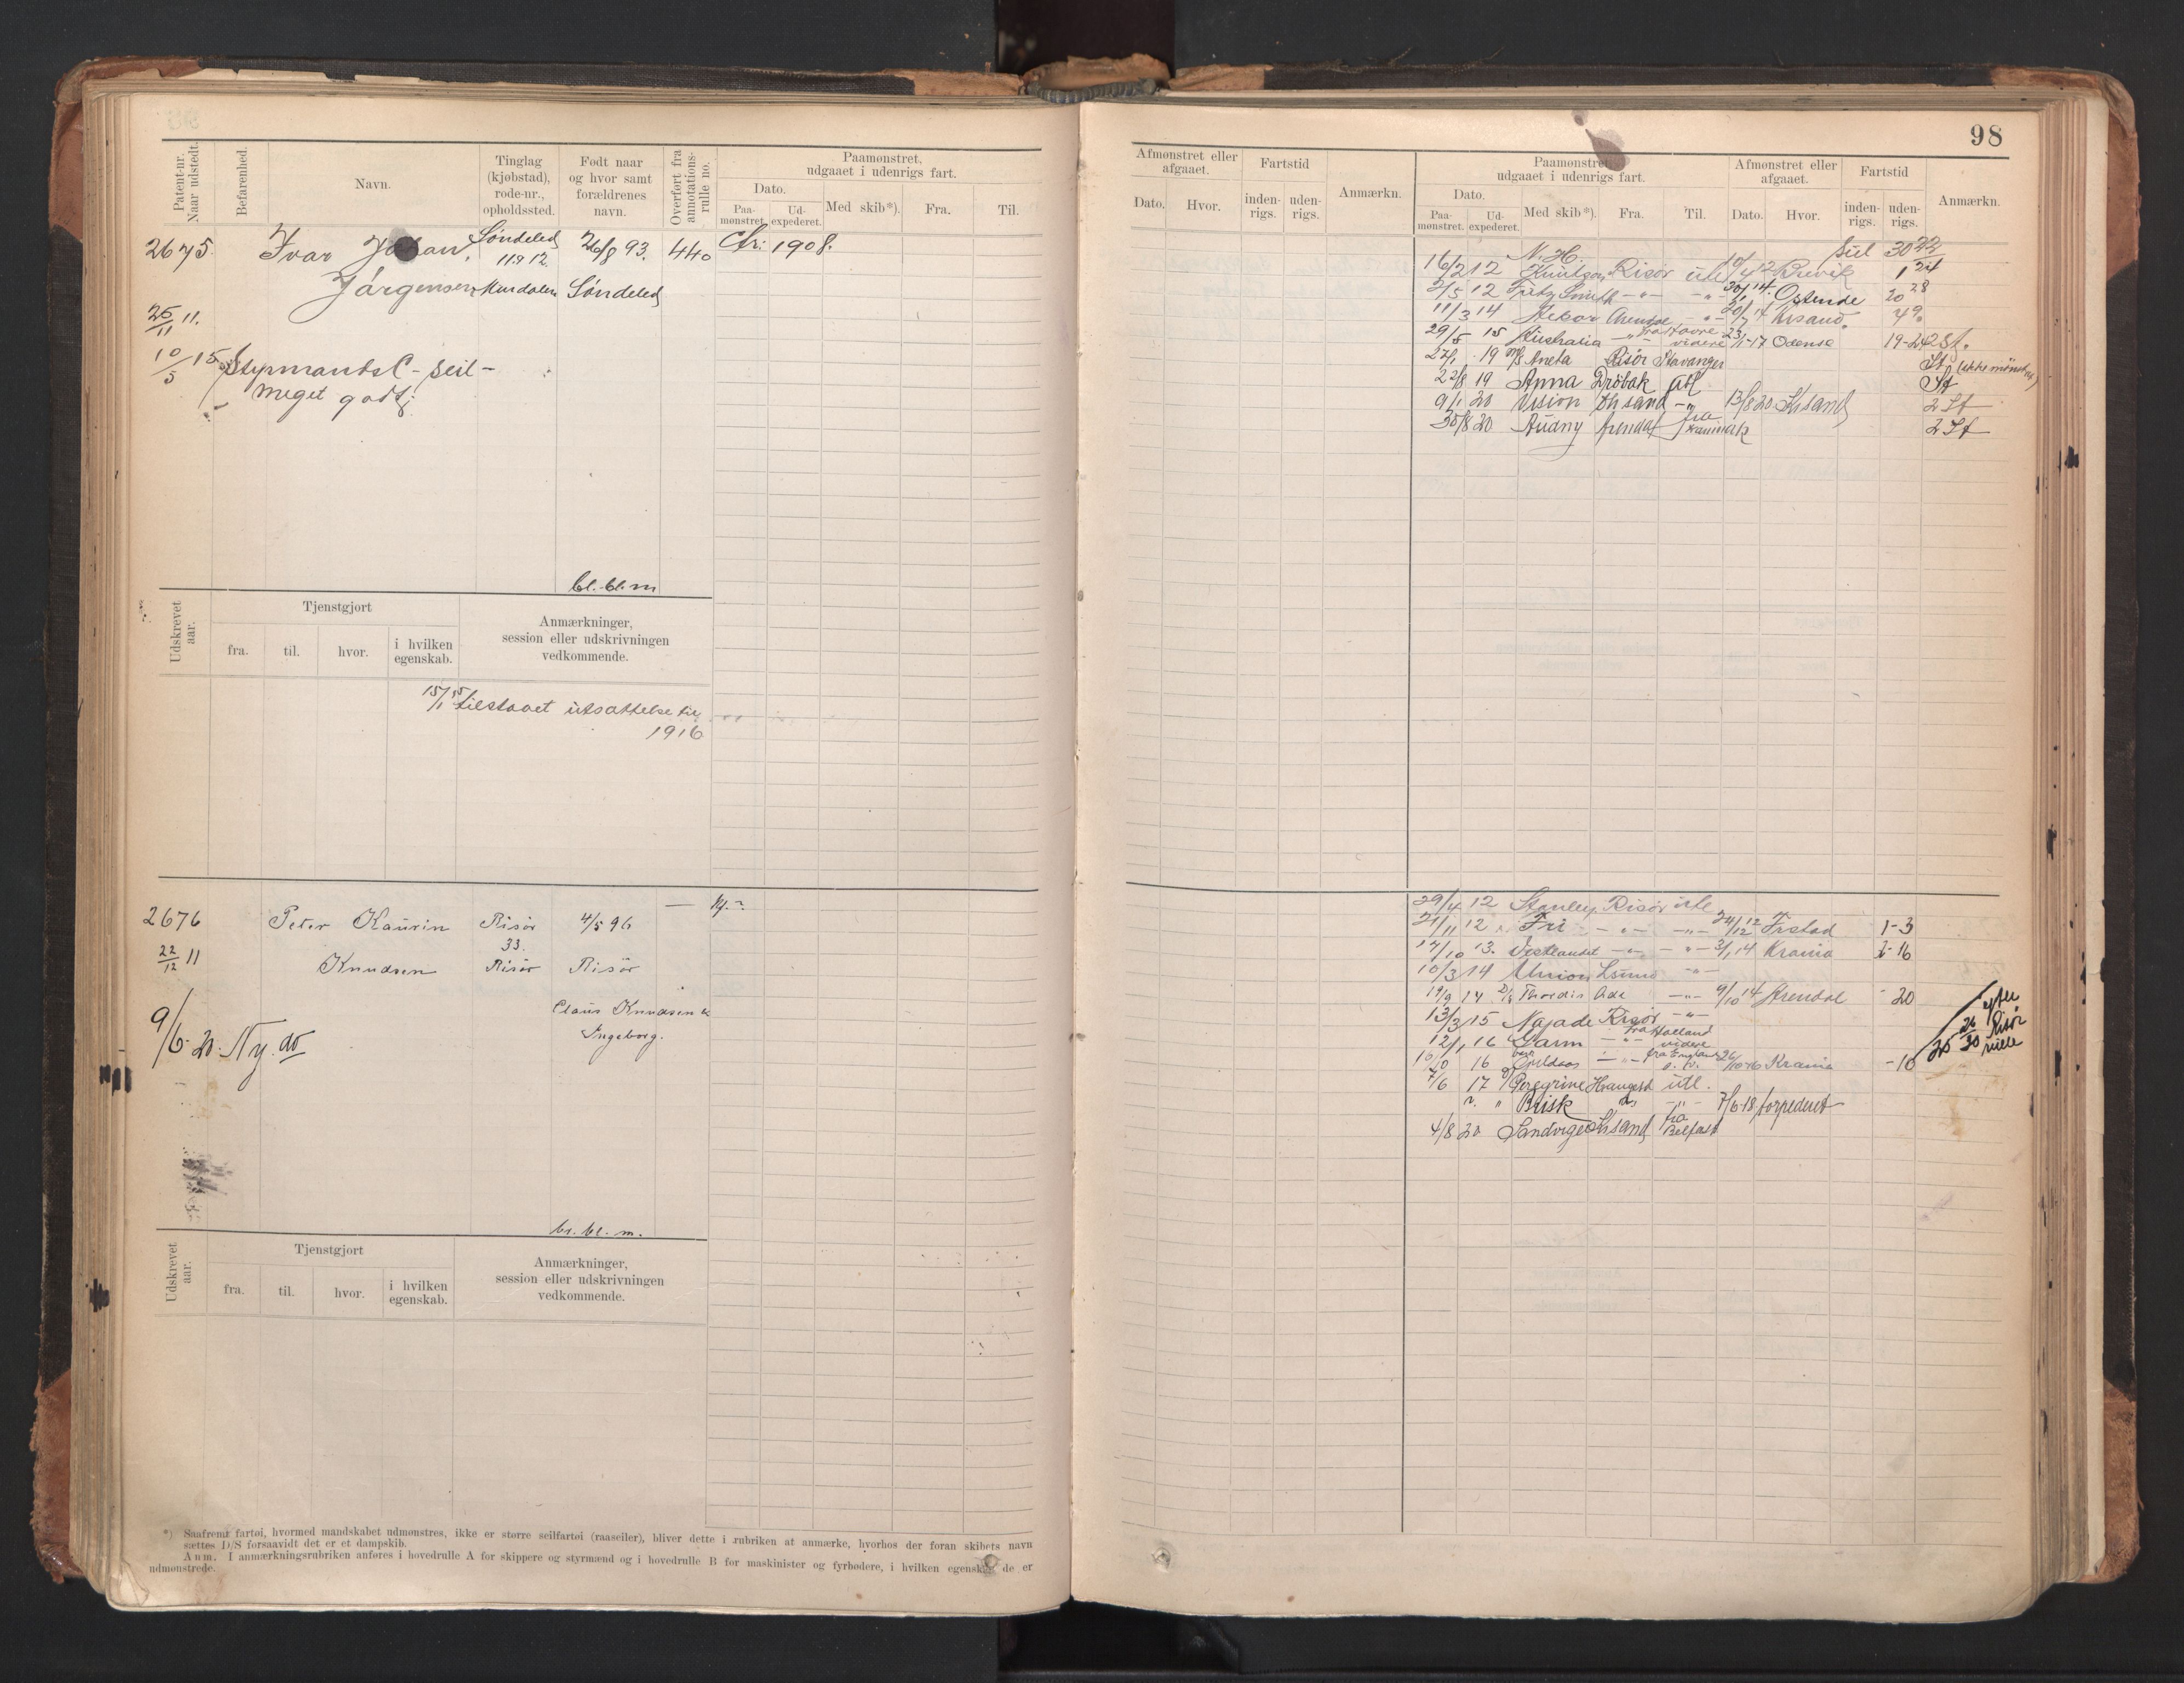 98
Patent-nr. Naar udstedt.
Befarenhed.
Navn.
Tinglag (kjøbstad), rode-nr., opholdssted.
Født naar og hvor samt forældrenes navn.
Overført fra annotations-rulle no.
Paamønstret, udgaaet i udenrigs fart.
Dato.
Paa-mønstret.
Ud-expederet.
Med skib*).
Fra.
Til.
2675.
Ivar Johan
Søndeled
26/8 93.
440
Chr: 1908.
119 12.
Jørgensen
Søndeled
25/11 11.
10/5 15
Styrmands C - Seil -
Meget godt
bl. bl. m
Udskrevet aar.
Tjenstgjort
fra.
til.
hvor.
i hvilken egenskab.
Anmærkninger, session eller udskrivningen vedkommende.
15/1 15 tilstaaet utsættelse til
1916
2676
Peter Kaurin
Risør
4/5 96
22/12 11
33.
Knudsen
Risør
Risör
Claus Knudsen &
Ingeborg.
9/6 20. Ny do
bl. bl. m.
Udskrevet aar.
Tjenstgjort
fra.
til.
hvor.
i hvilken egenskab.
Anmærkninger, session eller udskrivningen vedkommende.
*) Saafremt fartøi, hvormed mandskabet udmønstres, ikke er større seilfartøi (raaseiler), bliver dette i rubriken at anmærke, hvorhos der foran skibets navn
sættes D/S forsaavidt det er et dampskib.
Anm. I anmærkningsrubriken anføres i hovedrulle A for skippere og styrmænd og i hovedrulle B for maskinister og fyrbødere, i hvilken egenskab de er
udmønstrede.
Afmønstret eller afgaaet.
Fartstid
Dato.
Hvor.
inden-rigs.
uden-rigs.
Anmærkn.
Paamønstret, udgaaet i udenrigs fart.
Dato.
Paa-mønstret.
Ud-expederet.
Med skib*).
Fra.
Til.
Afmønstret eller afgaaet.
Dato.
Hvor.
Fartstid
inden-rigs.
uden-rigs.
Anmærkn.
N. H. Seil 30 22
16/2 12 Knutzon Risør utl 10/4 12 Brevik 1 24
2/5 12 Fritz Smith -"- -"- 30/1 14. Ostende 20 28
11/3 14 Hekor Arendal -"- 20/7 14 Krsand. 4 9
29/5 15 Australia -"- fra Havre videre 23/1-17 Odense 19-24 2 St.
27/1 19 M/S Aneta Risör Stavanger St (ikke mönstret)
22/8 19 Anna Dröbak utl St
9/1 20 Vision Krsand -"- 13/8 20 Krsand 2 St
30/8 20 Audny Arendal fra 2 St
29/4 12 Stanley Risör utl
21/11 12 Fri -"- -"- 24/12 12 Frstad 1-3
14/10 13. Vestlandet -"- -"- 3/1 14 Krania 2-16
10/3 14 Union -"-
19/9 14 D/S Thordis Oda -"- 9/10 14 Arendal - 20
13/3 15 Najade Risør -"-
12/1 16 Garm -"- fra Holland videre
10/10 16 -"- fra England 26/10-16 Krania -10
7/6 17 Peregrine Haugesd utl.
" Brisk -"- 7/6-18 torpederet
4/8 20 Sandvigen Krsand fra Belfast
efter
26/20 Risør